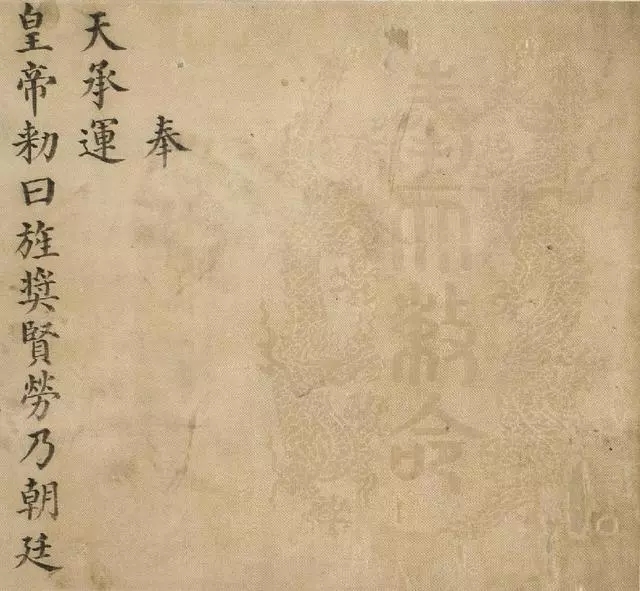 奉天敕命
奉
天承運
皇帝勅曰旌奬賢勞乃朝廷